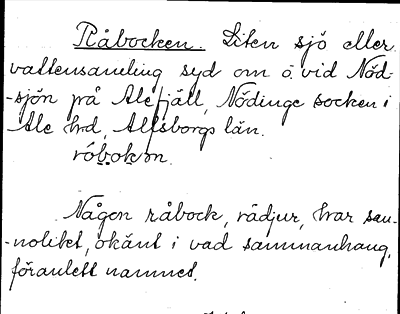 Råbocken. Liten sjö eller
vattensamling syd om o. vid Nöd-
-sjön på Ale fjäll, Nödinge socken i
Ale hrd, Älfsborgs län.
róbokɒn.
Någon råbock, rådjur, har san-
-nolikt, okänt i vad sammanhang,
föranlett namnet.